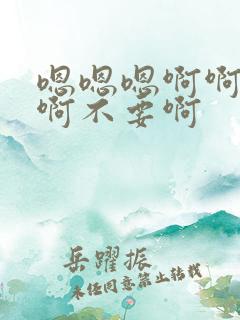 嗯嗯嗯啊啊
啊不要啊
岳躍振
未经同意禁止转载